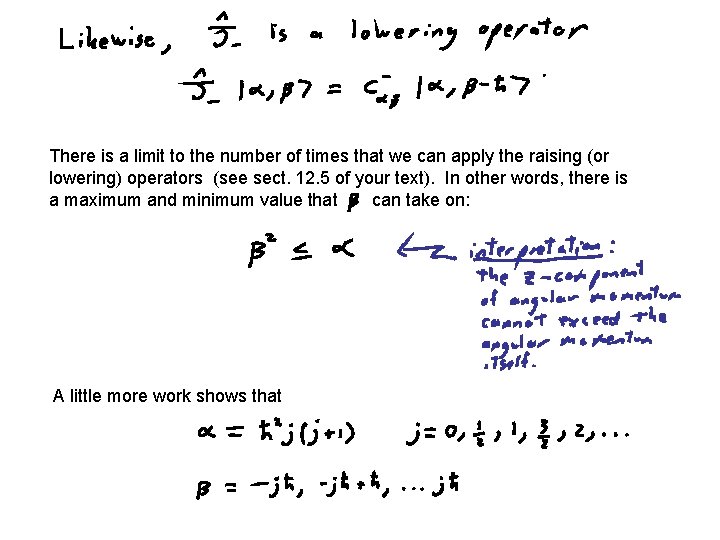 Likewise, Ĵ₋ is a lowering operator
Ĵ₋ |α, β⟩ = C⁻αβ |α, β-ħ⟩
There is a limit to the number of times that we can apply the raising (or
lowering) operators (see sect. 12.5 of your text). In other words, there is
a maximum and minimum value that β can take on:
β² ≤ α
interpretation:
the z-component
of angular momentum
cannot exceed the
angular momentum
itself.
A little more work shows that
α = ħ²j(j+1) j=0, 1/2, 1, 3/2, 2, ...
β = -jħ, -jħ+ħ, ... jħ